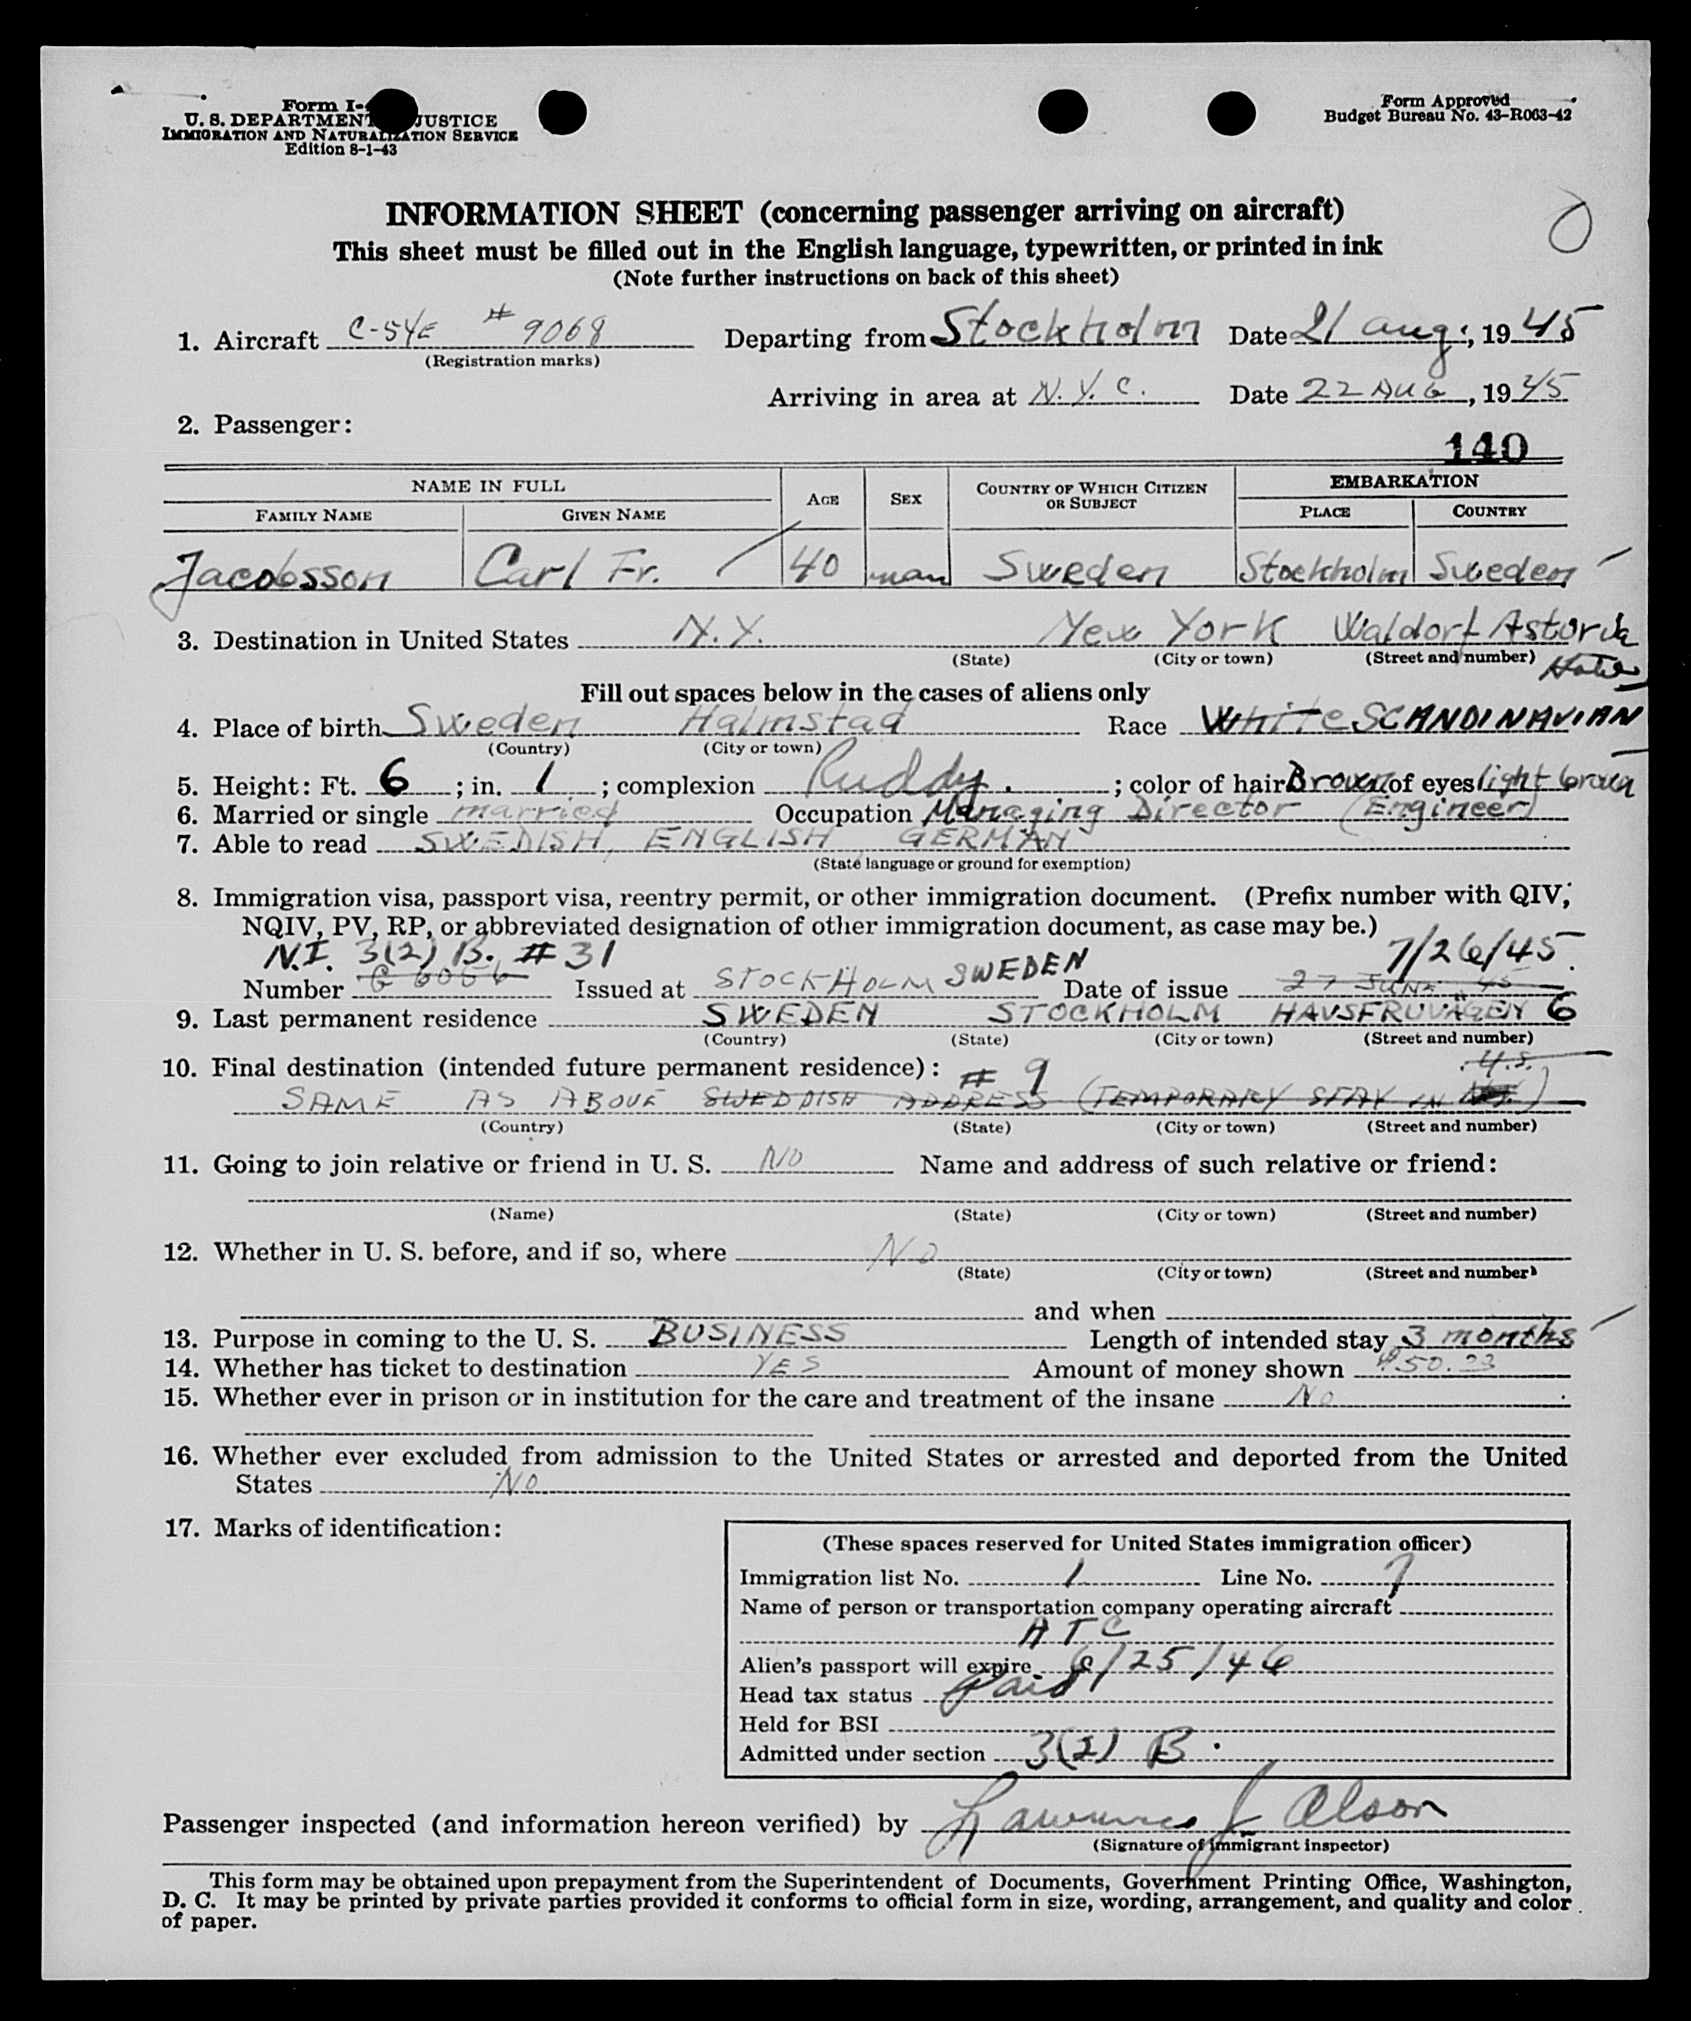 Form I-
U. S. DEPARTMENT JUSTICE
IMMIGRATION AND NATURALIZATION SERVICE
Edition 8-1-43
Form Approved
Budget Bureau No. 43-R063-42
INFORMATION SHEET (concerning passenger arriving on aircraft)
This sheet must be filled out in the English language, typewritten, or printed in ink
(Note further instructions on back of this sheet)
1. Aircraft C-54E # 9068 Departing from Stockholm Date 21 aug:, 1945
(Registration marks)
Arriving in area at N.Y.C. Date 22 AUG, 1945
2. Passenger:
140
NAME IN FULL AGE SEX COUNTRY OF WHICH CITIZEN OR SUBJECT EMBARKATION
FAMILY NAME GIVEN NAME PLACE COUNTRY
Jacobsson Carl Fr. 40 man Sweden Stockholm Sweden
3. Destination in United States N.Y. New York Waldorf Astoria Hotel
(State) (City or town) (Street and number)
Fill out spaces below in the cases of aliens only
4. Place of birth Sweden Halmstad Race White SCANDINAVIAN
(Country) (City or town)
5. Height: Ft. 6 ; in. 1 ; complexion Ruddy. ; color of hair Brown of eyes light brown
6. Married or single married Occupation Managing Director (Engineer)
7. Able to read SWEDISH, ENGLISH GERMAN
(State language or ground for exemption)
8. Immigration visa, passport visa, reentry permit, or other immigration document. (Prefix number with QIV,
NQIV, PV, RP, or abbreviated designation of other immigration document, as case may be.)
N.I. 3(2) B. # 31 7/26/45.
Number Issued at STOCKHOLM SWEDEN Date of issue 27 JUNE 45
9. Last permanent residence SWEDEN STOCKHOLM HAVSFRUVÄGEN 6
(Country) (State) (City or town) (Street and number)
10. Final destination (intended future permanent residence): # 9 U.S.
SAME AS ABOVE SWEDDISH ADDRESS (TEMPORARY STAY IN )
(Country) (State) (City or town) (Street and number)
11. Going to join relative or friend in U. S. NO Name and address of such relative or friend:
(Name) (State) (City or town) (Street and number)
12. Whether in U. S. before, and if so, where NO
(State) (City or town) (Street and number)
and when
13. Purpose in coming to the U. S. BUSINESS Length of intended stay 3 months
14. Whether has ticket to destination YES Amount of money shown
15. Whether ever in prison or in institution for the care and treatment of the insane NO
16. Whether ever excluded from admission to the United States or arrested and deported from the United
States NO
17. Marks of identification:
(These spaces reserved for United States immigration officer)
Immigration list No. 1 Line No. 7
Name of person or transportation company operating aircraft
ATC
Alien's passport will expire 6/25/46
Head tax status Paid
Held for BSI
Admitted under section 3(2) B.
Passenger inspected (and information hereon verified) by Lawrence J Olson
(Signature of immigrant inspector)
This form may be obtained upon prepayment from the Superintendent of Documents, Government Printing Office, Washington,
D. C. It may be printed by private parties provided it conforms to official form in size, wording, arrangement, and quality and color
of paper.